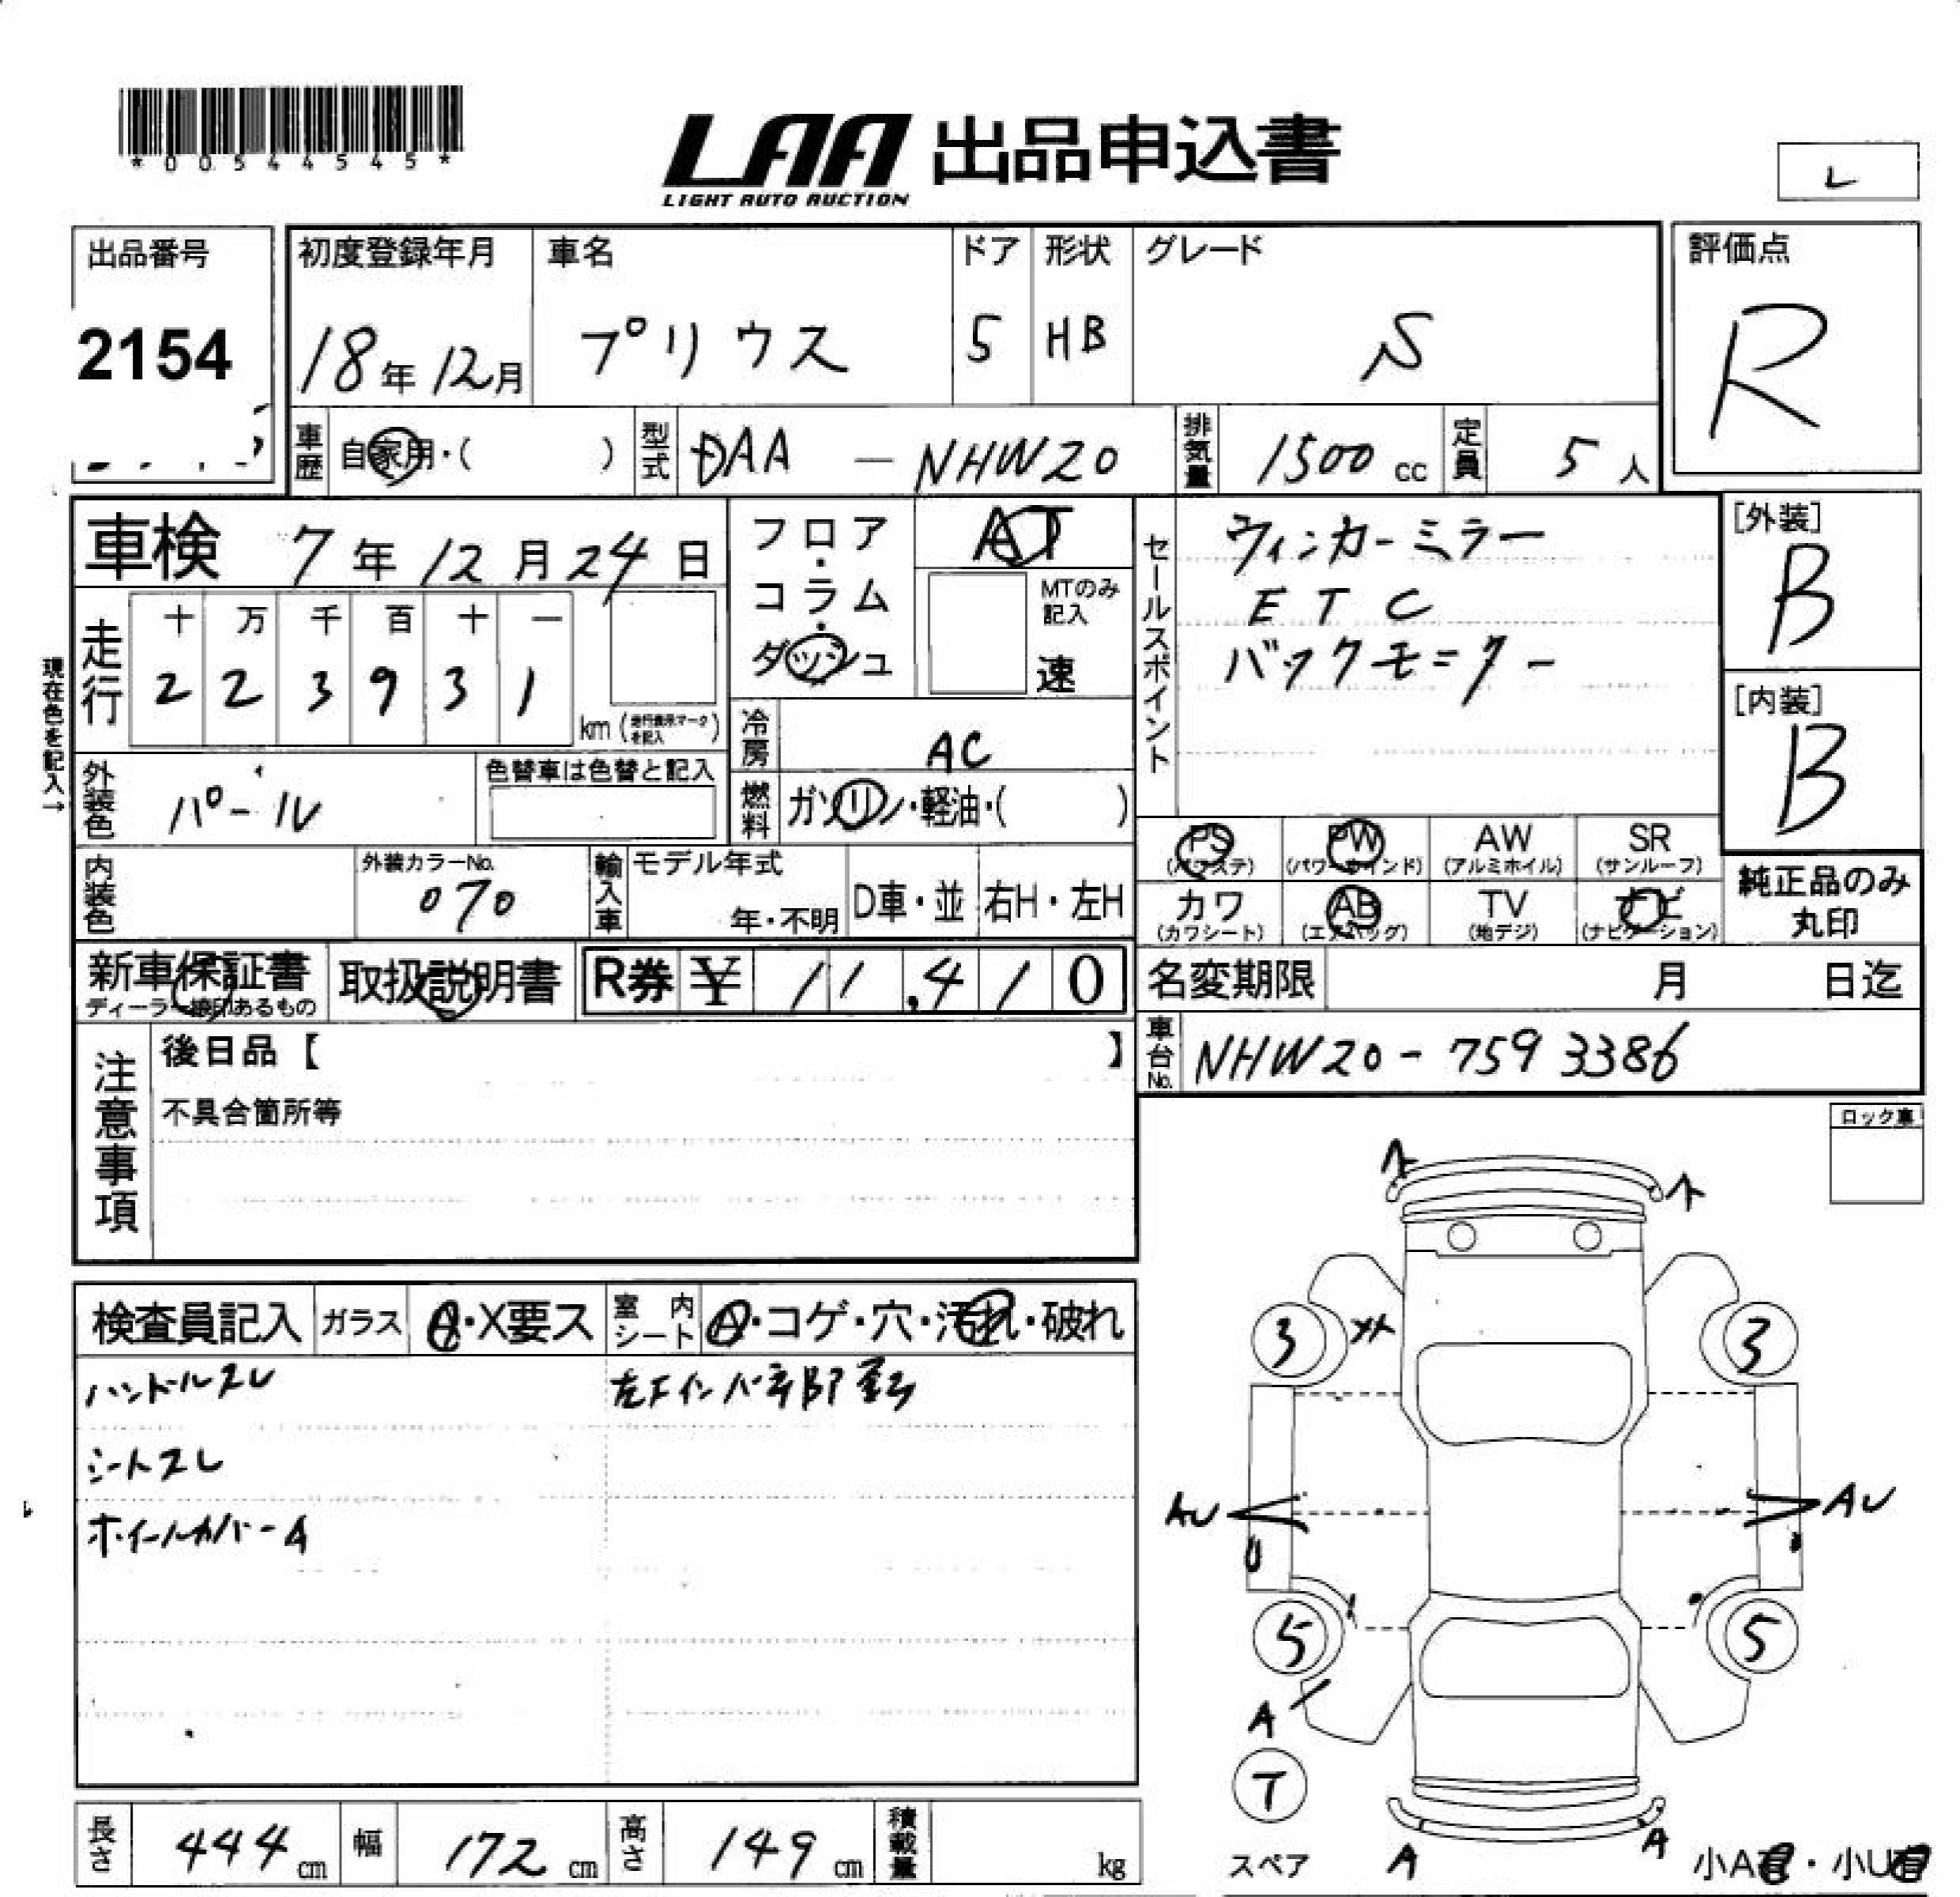 *00544545*
LAA 出品申込書
LIGHT AUTO AUCTION
レ
出品番号
2154
初度登録年月
18年 12月
車名
プリウス
ドア
5
形状
HB
グレード
S
評価点
R
車歴 自家用・( )
型式 DAA - NHW20
排気量 1500 cc
定員 5 人
車検 7年 12月 24日
フロア・コラム・ダッシュ
AT
MTのみ記入
速
セールスポイント
ウィンカーミラー
ETC
バックモニター
[外装]
B
[内装]
B
現在色を記入→
走行
十 万 千 百 十 一
2 2 3 9 3 1
km (走行表示マークを記入)
冷房 AC
燃料 ガソリン・軽油・( )
外装色 パール
色替車は色替と記入
内装色
外装カラーNo.
070
輸入車 モデル年式
年・不明
D車・並
右H・左H
PS (パワステ)
PW (パワーウインド)
AW (アルミホイル)
SR (サンルーフ)
カワ (カワシート)
AB (エアバッグ)
TV (地デジ)
ナビ (ナビゲーション)
純正品のみ
丸印
新車保証書
ディーラー捺印あるもの
取扱説明書
R券 ¥ 11,410
名変期限 月 日迄
車台No. NHW20-7593386
注意事項
後日品【 】
不具合箇所等
ロック車
検査員記入
ガラス A・X要ス
室内シート A・コゲ・穴・汚れ・破れ
ハンドルスレ
シートスレ
ホイールカバーA
左Fインパネ部
A
A
3
3
AU
AU
U
5
5
A
T
スペア
A
A
小A有・小U有
長さ 444 cm
幅 172 cm
高さ 149 cm
積載量 kg